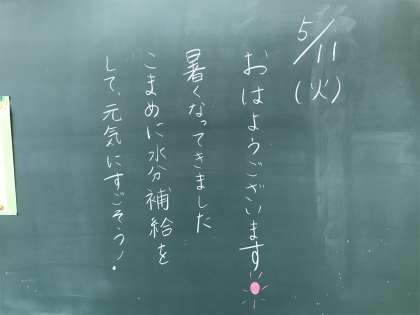 5/11
(火)
おはようございます
暑くなってきました
こまめに水分補給を
して、元気にすごそう!